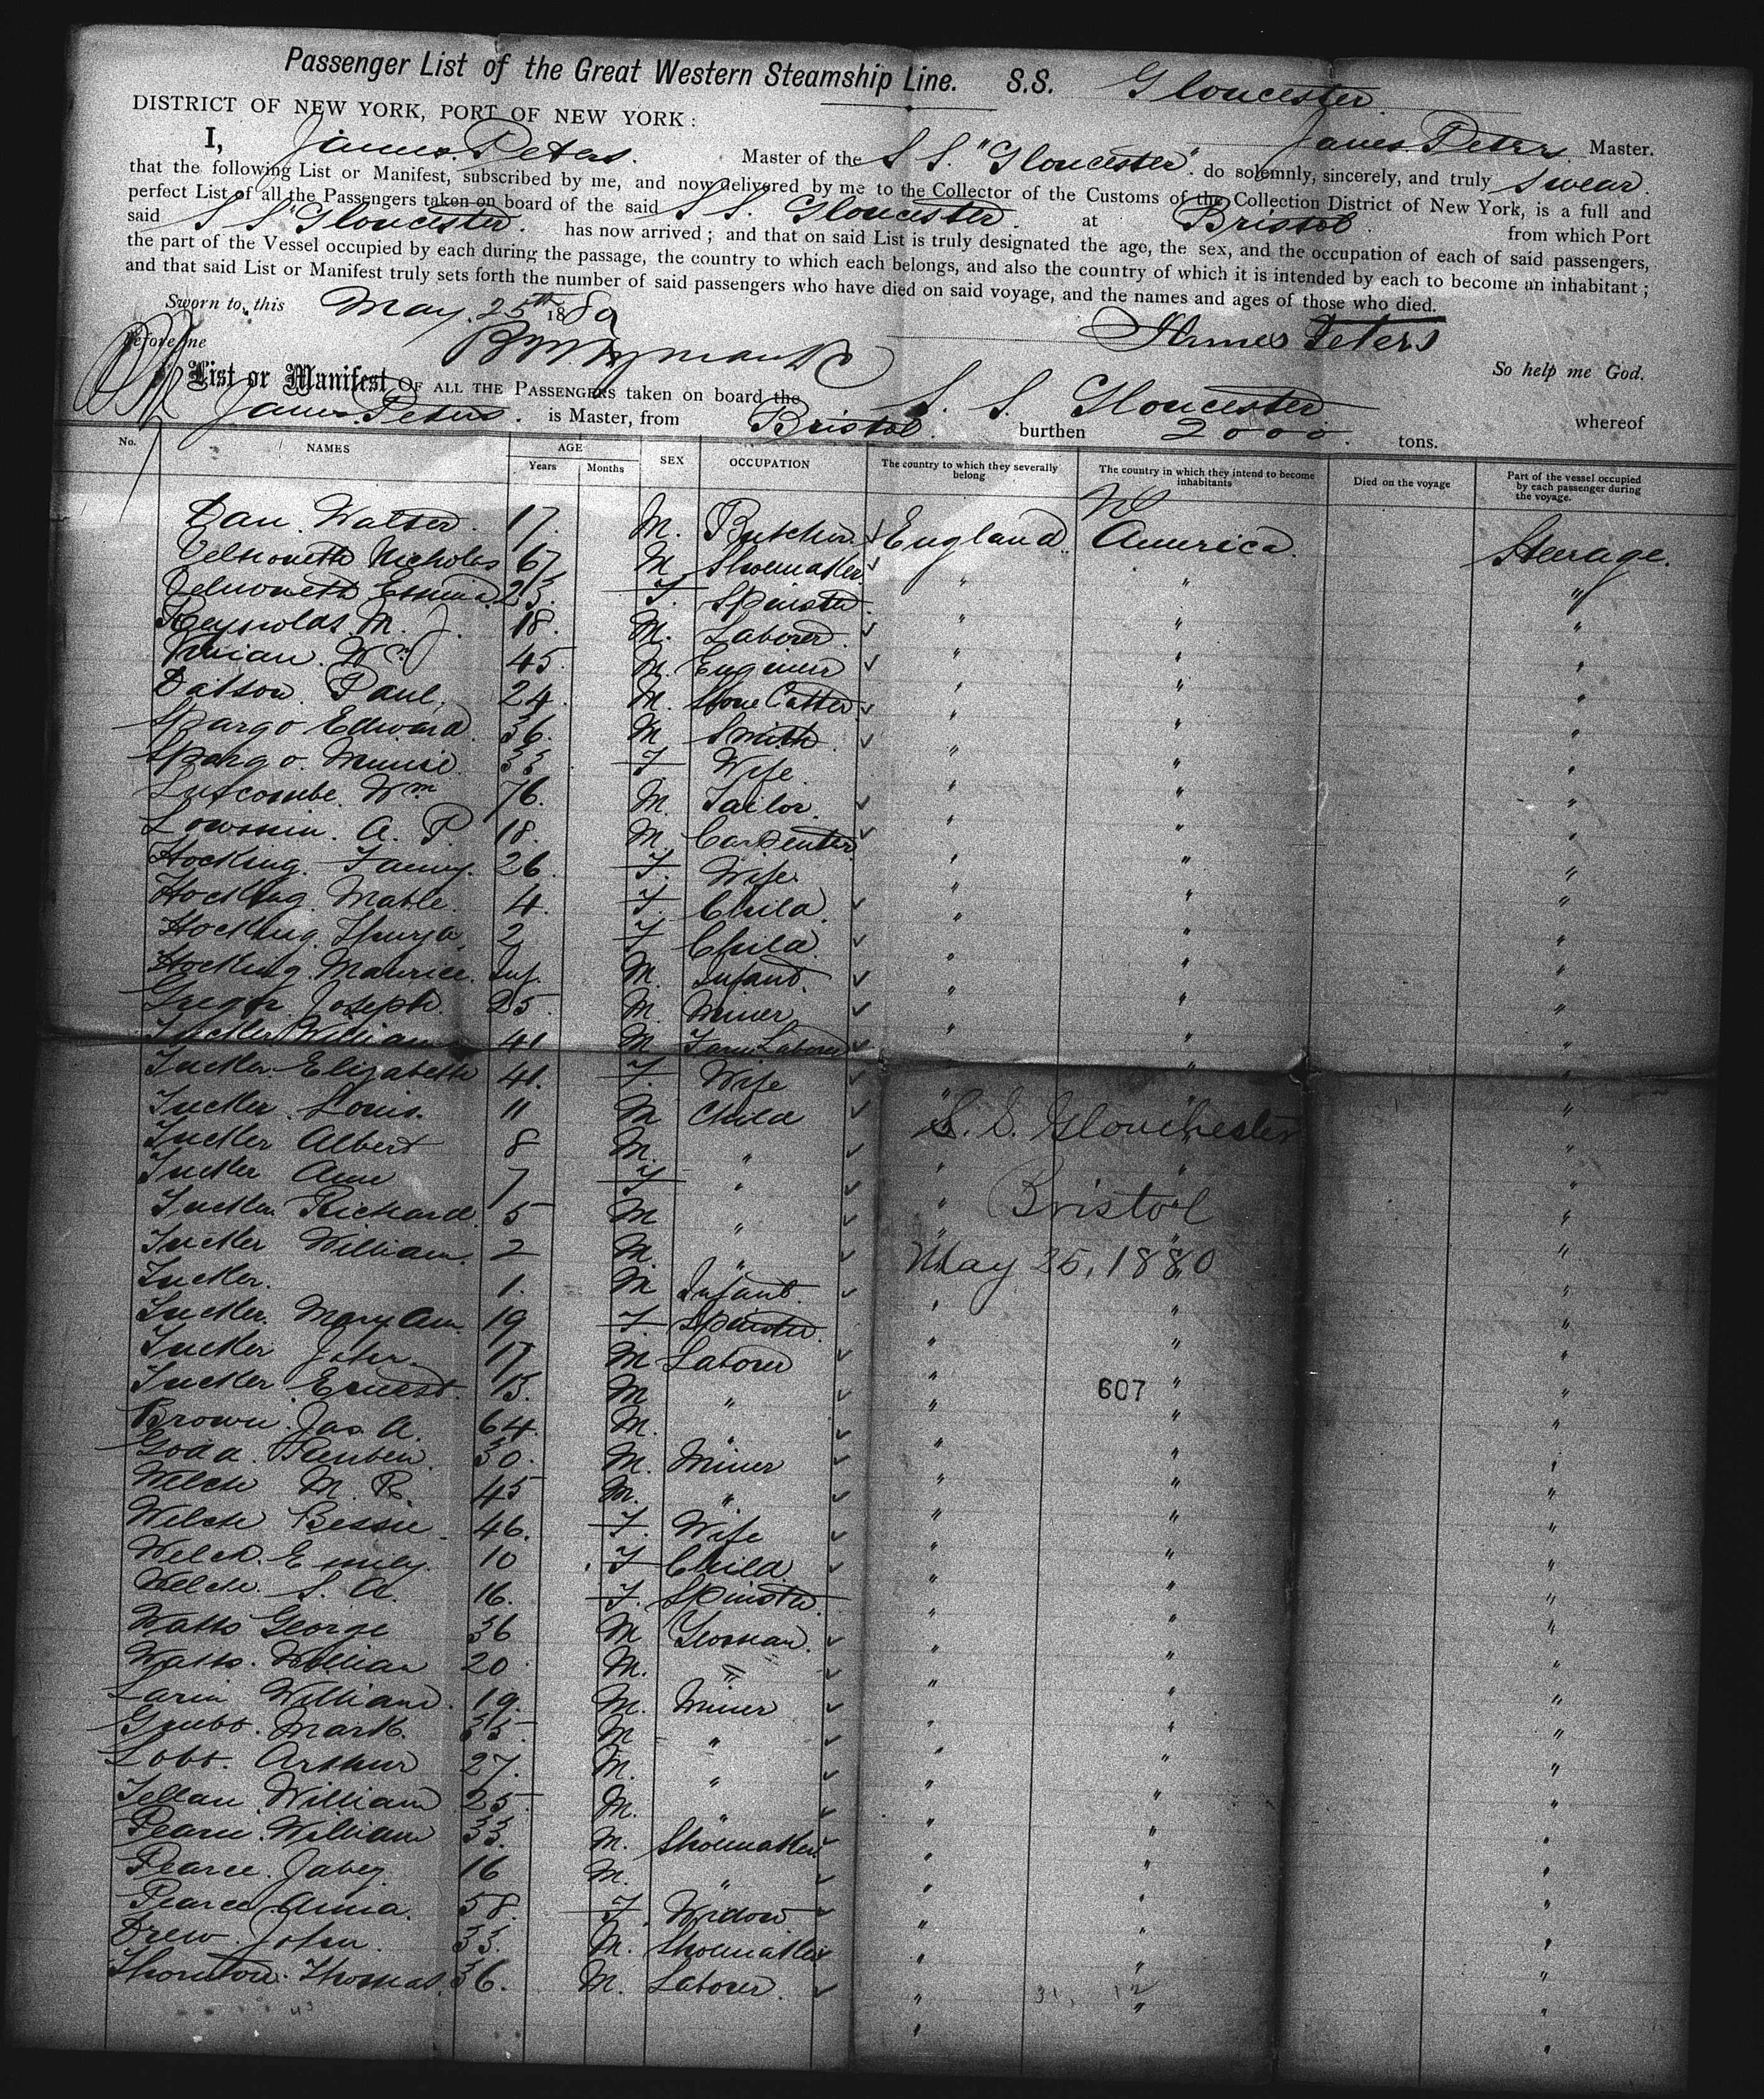 Passenger List of the Great Western Steamship Line. S.S. Gloucester
DISTRICT OF NEW YORK, PORT OF NEW YORK:
James Peters Master.
I, James Peters. Master of the S S. "Gloucester". do solemnly, sincerely, and truly swear.
that the following List or Manifest, subscribed by me, and now delivered by me to the Collector of the Customs of the Collection District of New York, is a full and
perfect List of all the Passengers taken on board of the said S S. Gloucester. at Bristol. from which Port
said S S "Gloucester. has now arrived; and that on said List is truly designated the age, the sex, and the occupation of each of said passengers,
the part of the Vessel occupied by each during the passage, the country to which each belongs, and also the country of which it is intended by each to become an inhabitant;
and that said List or Manifest truly sets forth the number of said passengers who have died on said voyage, and the names and ages of those who died.
Sworn to, this May. 25th 1880
James Peters
Before me
So help me God.
List or Manifest OF ALL THE PASSENGERS taken on board the S. S. Gloucester whereof
James Peters. is Master, from Bristol. burthen 2000. tons.
No. NAMES AGE Years Months SEX OCCUPATION The country to which they severally belong The country in which they intend to become inhabitants Died on the voyage Part of the vessel occupied by each passenger during the voyage.
Walter. 17. M. Butcher England. America. Steerage.
Nicholas 67 M Shoemaker " " "
Emma. 23. F. Spinster. " " "
Reynolds M. J. 18. M. Laborer " " "
Vivian. Wm 45. M. Engineer " " "
Datson. Paul. 24. M. Stone Cutter " " "
Spargo Edward. 36. M Smith. " " "
Spargo. Minnie. 33. F Wife. " " "
Luscombe. Wm 76. M. Tailor. " " "
A. P. 18. M. Carpenter " " "
Hocking. Fanny. 26. F. Wife. " " "
Hocking. Mable. 4. F. Child. " " "
Hocking. Thurza. 2 F Child. " " "
Hocking. Maurice. Inf. M. Infant. " " "
Gregor. Joseph. 25. M. Miner. " " "
Tuckler William 41 M Farm Laborer " " "
Tuckler. Elizabeth 41. F. Wife " " "
Tuckler. Louis. 11 M Child " " "
S. S. Glouchester
Tuckler Albert 8 M. " " " "
Tuckler Ann 7 F " " " "
Bristol
Tuckler Richard. 5 M " " " "
Tuckler William. 2 M. " " " "
May 25, 1880
Tuckler. 1. M Infant. " " "
Tuckler. Mary Ann. 19 F. Spinster. " " "
Tuckler John. 17 M Laborer " " "
Tuckler Ernest. 15. M " " " "
607
Brown. Jas. A. 64. M. " " " "
Goda. Reuben. 30. M. Miner " " "
Welch M. R. 45 M. " " " "
Welch Bessie 46. F. Wife " " "
Welch. Emily. 10 F Child. " " "
Welch. S. A. 16. F. Spinster. " " "
Watts George 36 M Yeoman. " " "
Watts. William 20 M. " " " "
William. 19. M. Miner " " "
Grubb. Mark. 35 M " " " "
Lobb. Arthur 27. M. " " " "
William 25. M. " " " "
Pearce. William 33. M. Shoemaker. " " "
Pearce. Jabez. 16 M. " " " "
Pearce Anna. 58. F. Widow " " "
Drew. John. 33. M. Shoemaker " " "
Thornton. Thomas. 36. M. Laborer. " " "